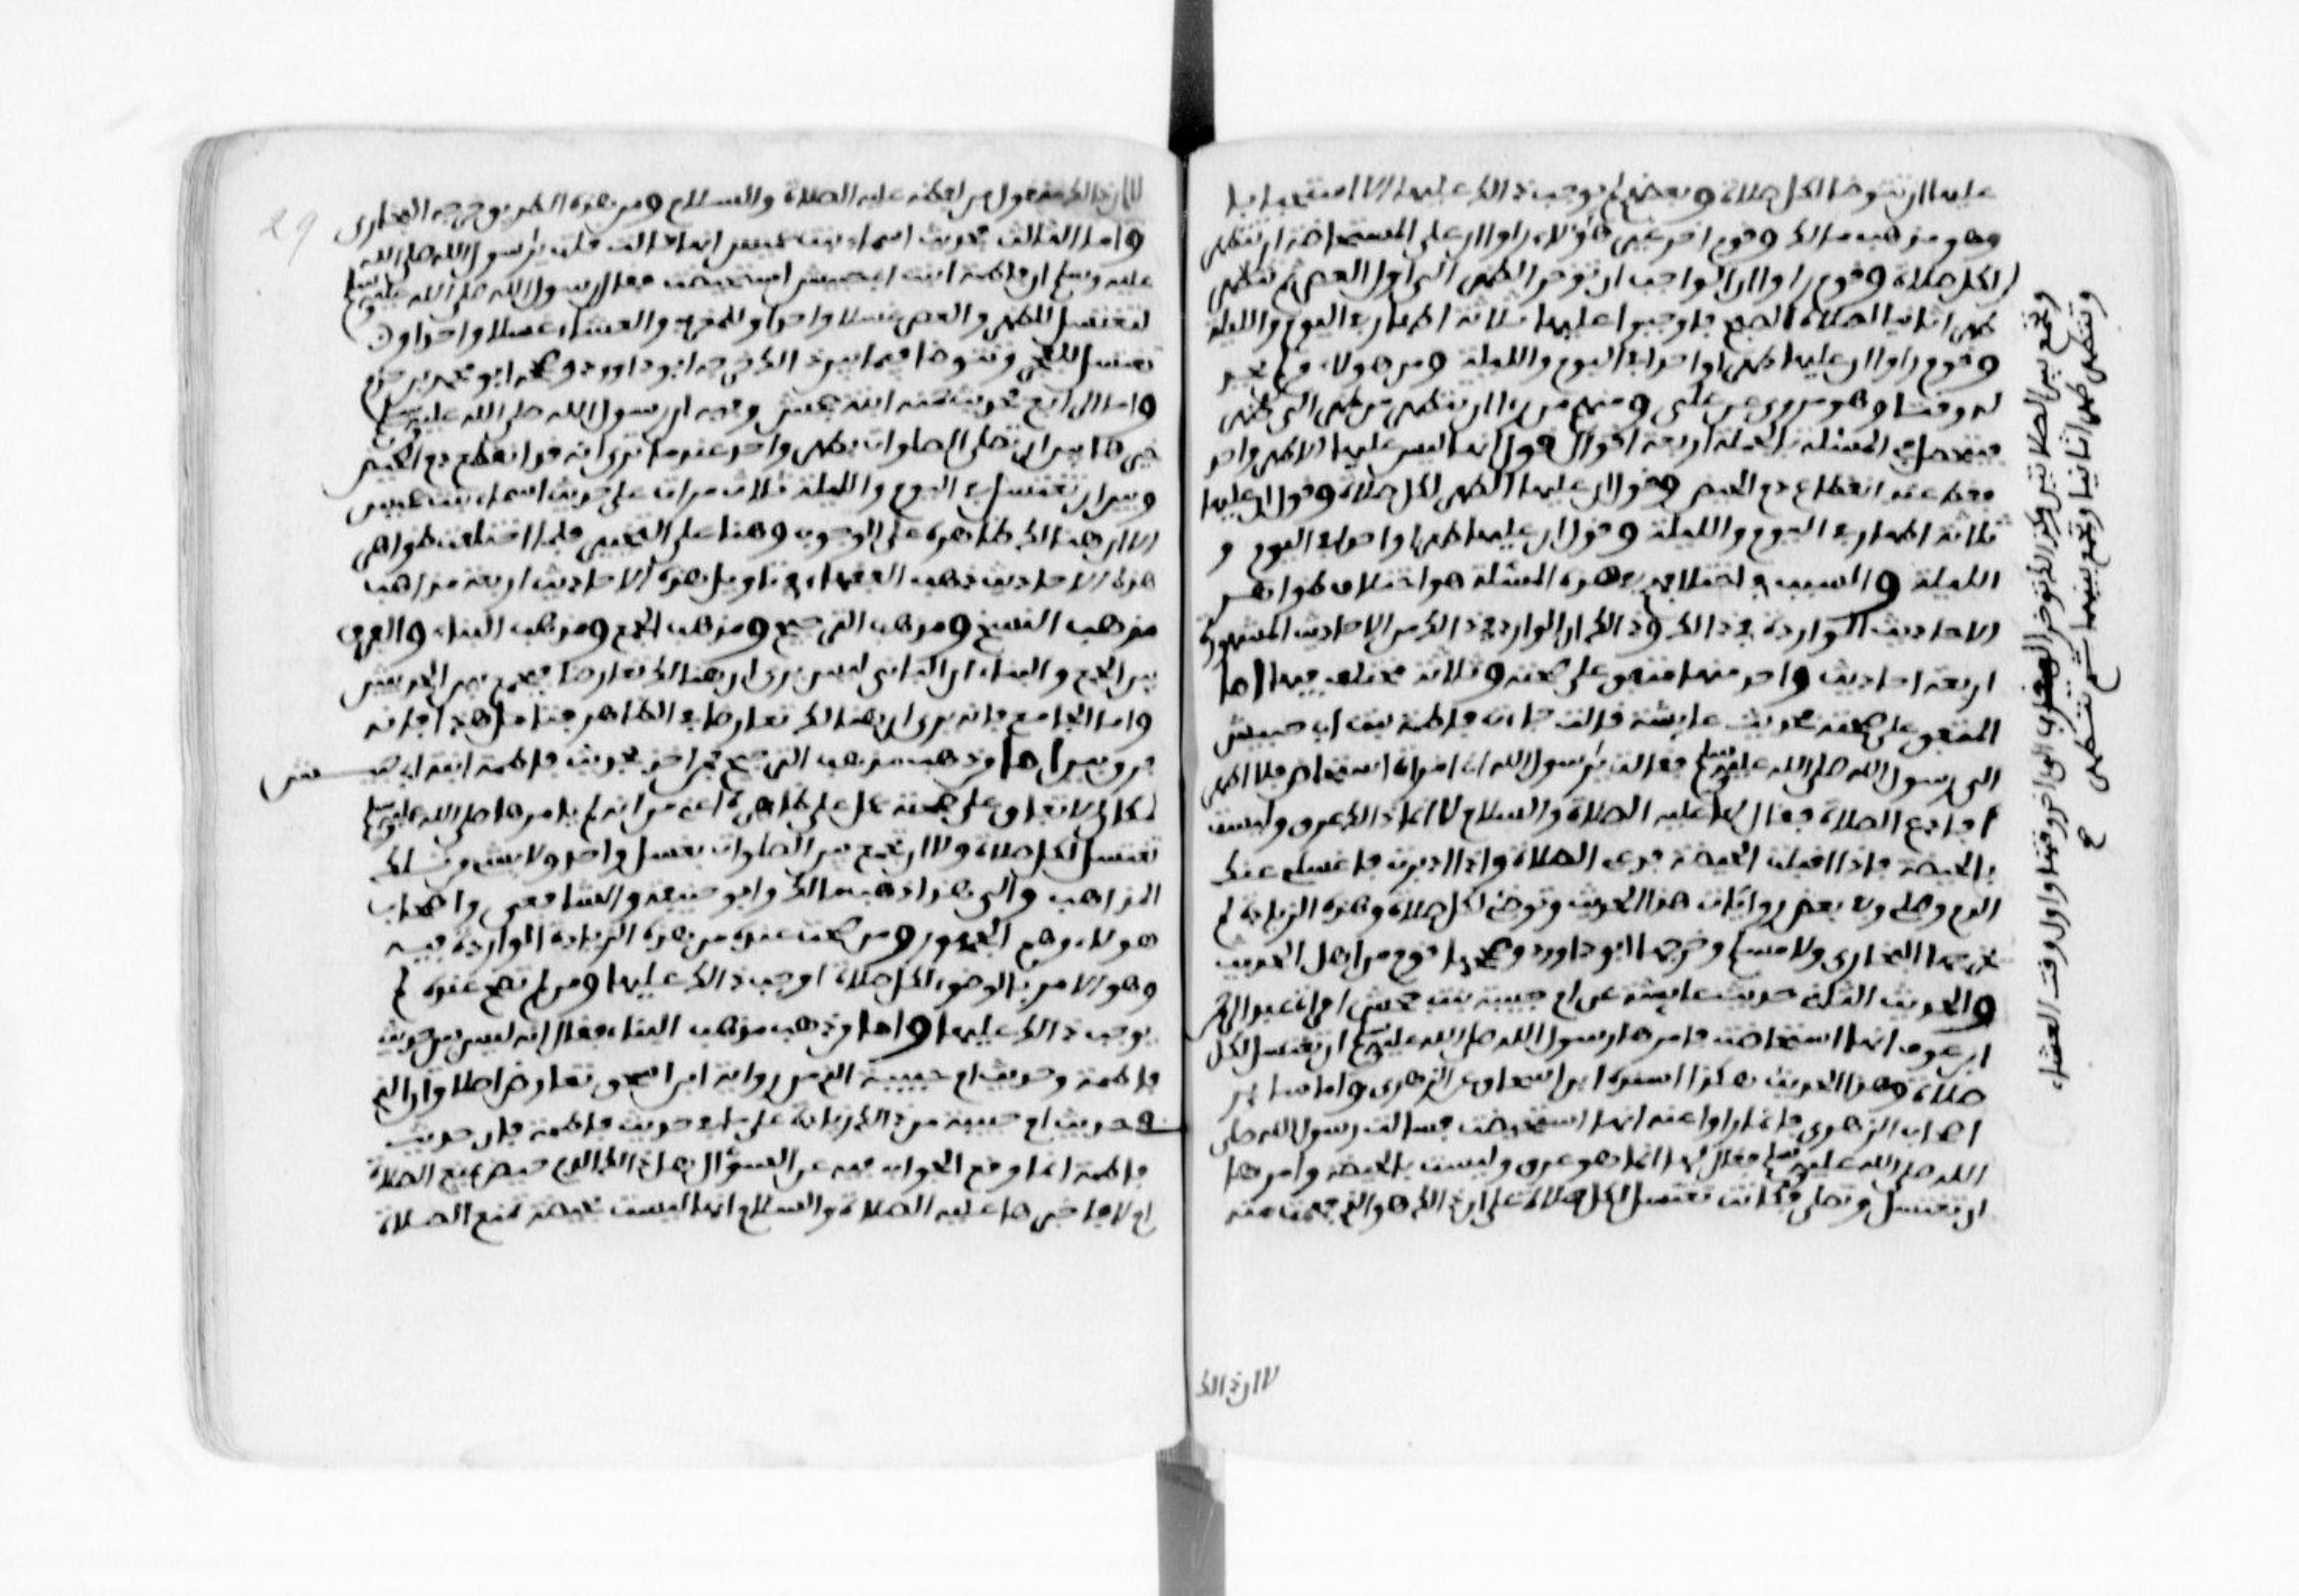 عليها ان تتوضا لكل صلاة وبعضهم لم يوجب ذالك عليها الا استحبابا
وهو مذهب مالك وقوم اخر غير هؤلاء راوا ان على المستحاضة ان تتطهر
لكل صلاة وقوم راوا ان الواجب ان توخر الظهر الى اول العصر ثم تتطهر
طهرا ثانيا لصلاة الصبح فاوجبوا عليها ثلاثة اطهار في اليوم والليلة
وقوم راوا ان عليها طهرا واحدا في اليوم والليلة ومن هولاء من لم يحد
له وقتا وهو مروي عن علي ومنهم من راى ان تتطهر من طهر الى طهر
فيتحصل في المسئلة بالجملة اربعة اقوال قول انه ليس عليها الا طهر واحد
فقط عند انقطاع دم الحيض وقول ان عليها الطهر لكل صلاة وقول ان عليها
ثلاثة اطهار في اليوم والليلة وقول ان عليها طهرا واحدا في اليوم و
الليلة والسبب في اختلافهم في هذه المسئلة هو اختلاف ظواهر
الاحاديث الواردة في ذالك وذالك ان الوارد في ذالك من الاحاديث المشهورة
اربعة احاديث واحد منها متفق على صحته وثلاثة مختلف فيها اما
المتفق على صحته فحديث عايشة قالت جاءت فاطمة بنت ابي حبيش
الى رسول الله صلى الله عليه وسلم فقالت يا رسول الله اني امراة استحاض فلا اطهر
افادع الصلاة فقال لها عليه الصلاة والسلام لا انما ذالك عرق وليست
بالحيضة فاذا اقبلت الحيضة فدعي الصلاة واذا ادبرت فاغسلي عنك
الدم وصلي وفي بعض روايات هذا الحديث وتوضئي لكل صلاة وهذه الزيادة لم
يخرجها البخاري ولا مسلم وخرجها ابو داوود وصححها قوم من اهل الحديث
والحديث الثاني حديث عايشة عن ام حبيبة بنت جحش امراة عبد الرحمن
ابن عوف انها استحاضت فامرها رسول الله صلى الله عليه وسلم ان تغتسل لكل
صلاة وهذا الحديث هكذا اسنده ابن اسحاق عن الزهري واما ساير
اصحاب الزهري فانما رووا عنه انها استحيضت فسالت رسول الله صلى
الله صلى الله عليه وسلم فقال لها انما هو عرق وليست بالحيضة وامرها
ان تغتسل وتصلي فكانت تغتسل لكل صلاة على ان ذالك هو الذي فهمت منه
لا ان ذالك
وتجمع بين الصلاتين وكذالك توخر المغرب الى اخر وقتها واول وقت العشاء
وتتطهر طهرا ثانيا وتجمع بينهما ثم تتطهر
لا ان ذالك منقول من لفظه عليه الصلاة والسلام ومن هذه الطريق خرجه البخاري
واما الثالث فحديث اسماء بنت عميس انها قالت قلت يا رسول الله صلى الله
عليه وسلم ان فاطمة ابنت ابي حبيش استحيضت فقال رسول الله صلى الله عليه وسلم
لتغتسل للظهر والعصر غسلا واحدا وللمغرب والعشاء غسلا واحدا و
تغتسل للفجر وتتوضا فيما بين ذالك خرجه ابو داوود وصححه ابو محمد بن حزم
واما الرابع فحديث حمنة ابنة جحش وفيه ان رسول الله صلى الله عليه وسلم
خيرها بين ان تصلي الصلوات بطهر واحد عندما ترى انه قد انقطع دم الحيض
وبين ان تغتسل في اليوم والليلة ثلاث مرات على حديث اسماء بنت عميس
الا ان هنالك ظاهره على الوجوب وهنا على التخيير فلما اختلفت ظواهر
هذه الاحاديث ذهب الفقهاء في تاويل هذه الاحاديث اربعة مذاهب
مذهب النسخ ومذهب الترجيح ومذهب الجمع ومذهب البناء والفرق
بين الجمع والبناء ان الباني ليس يرى ان هنالك تعارضا فيجمع بين الحديثين
واما الجامع فانه يرى ان هنالك تعارضا في الظاهر فتامل هذا فانه
فرق بين اما من ذهب مذهب الترجيح فمن اخذ بحديث فاطمة ابنة ابي حبيش
لمكان الاتفاق على صحته عمل على ظاهره اعني من انه لم يامرها صلى الله عليه وسلم
تغتسل لكل صلاة ولا ان تجمع بين الصلوات بغسل واحد ولا بشيء من تلك
المذاهب والى هذا ذهب مالك وابو حنيفة والشافعي واصحاب
هولاء وهم الجمهور ومن صحت عنده من هذه الزيادة الواردة فيه
وهو الامر بالوضوء لكل صلاة اوجب ذالك عليها ومن لم تصح عنده لم
يوجب ذالك عليها واما من ذهب مذهب البناء فقال انه ليس بين حديث
فاطمة وحديث ام حبيبة الذي من رواية ابن اسحق تعارض اصلا وان الذي
في حديث ام حبيبة من ذالك زيادة على ما في حديث فاطمة فان حديث
فاطمة انما وقع الجواب فيه عن السؤال هل ذالك الدم حيض يمنع الصلاة
ام لا فاخبرها عليه الصلاة والسلام انها ليست بحيضة تمنع الصلاة
29